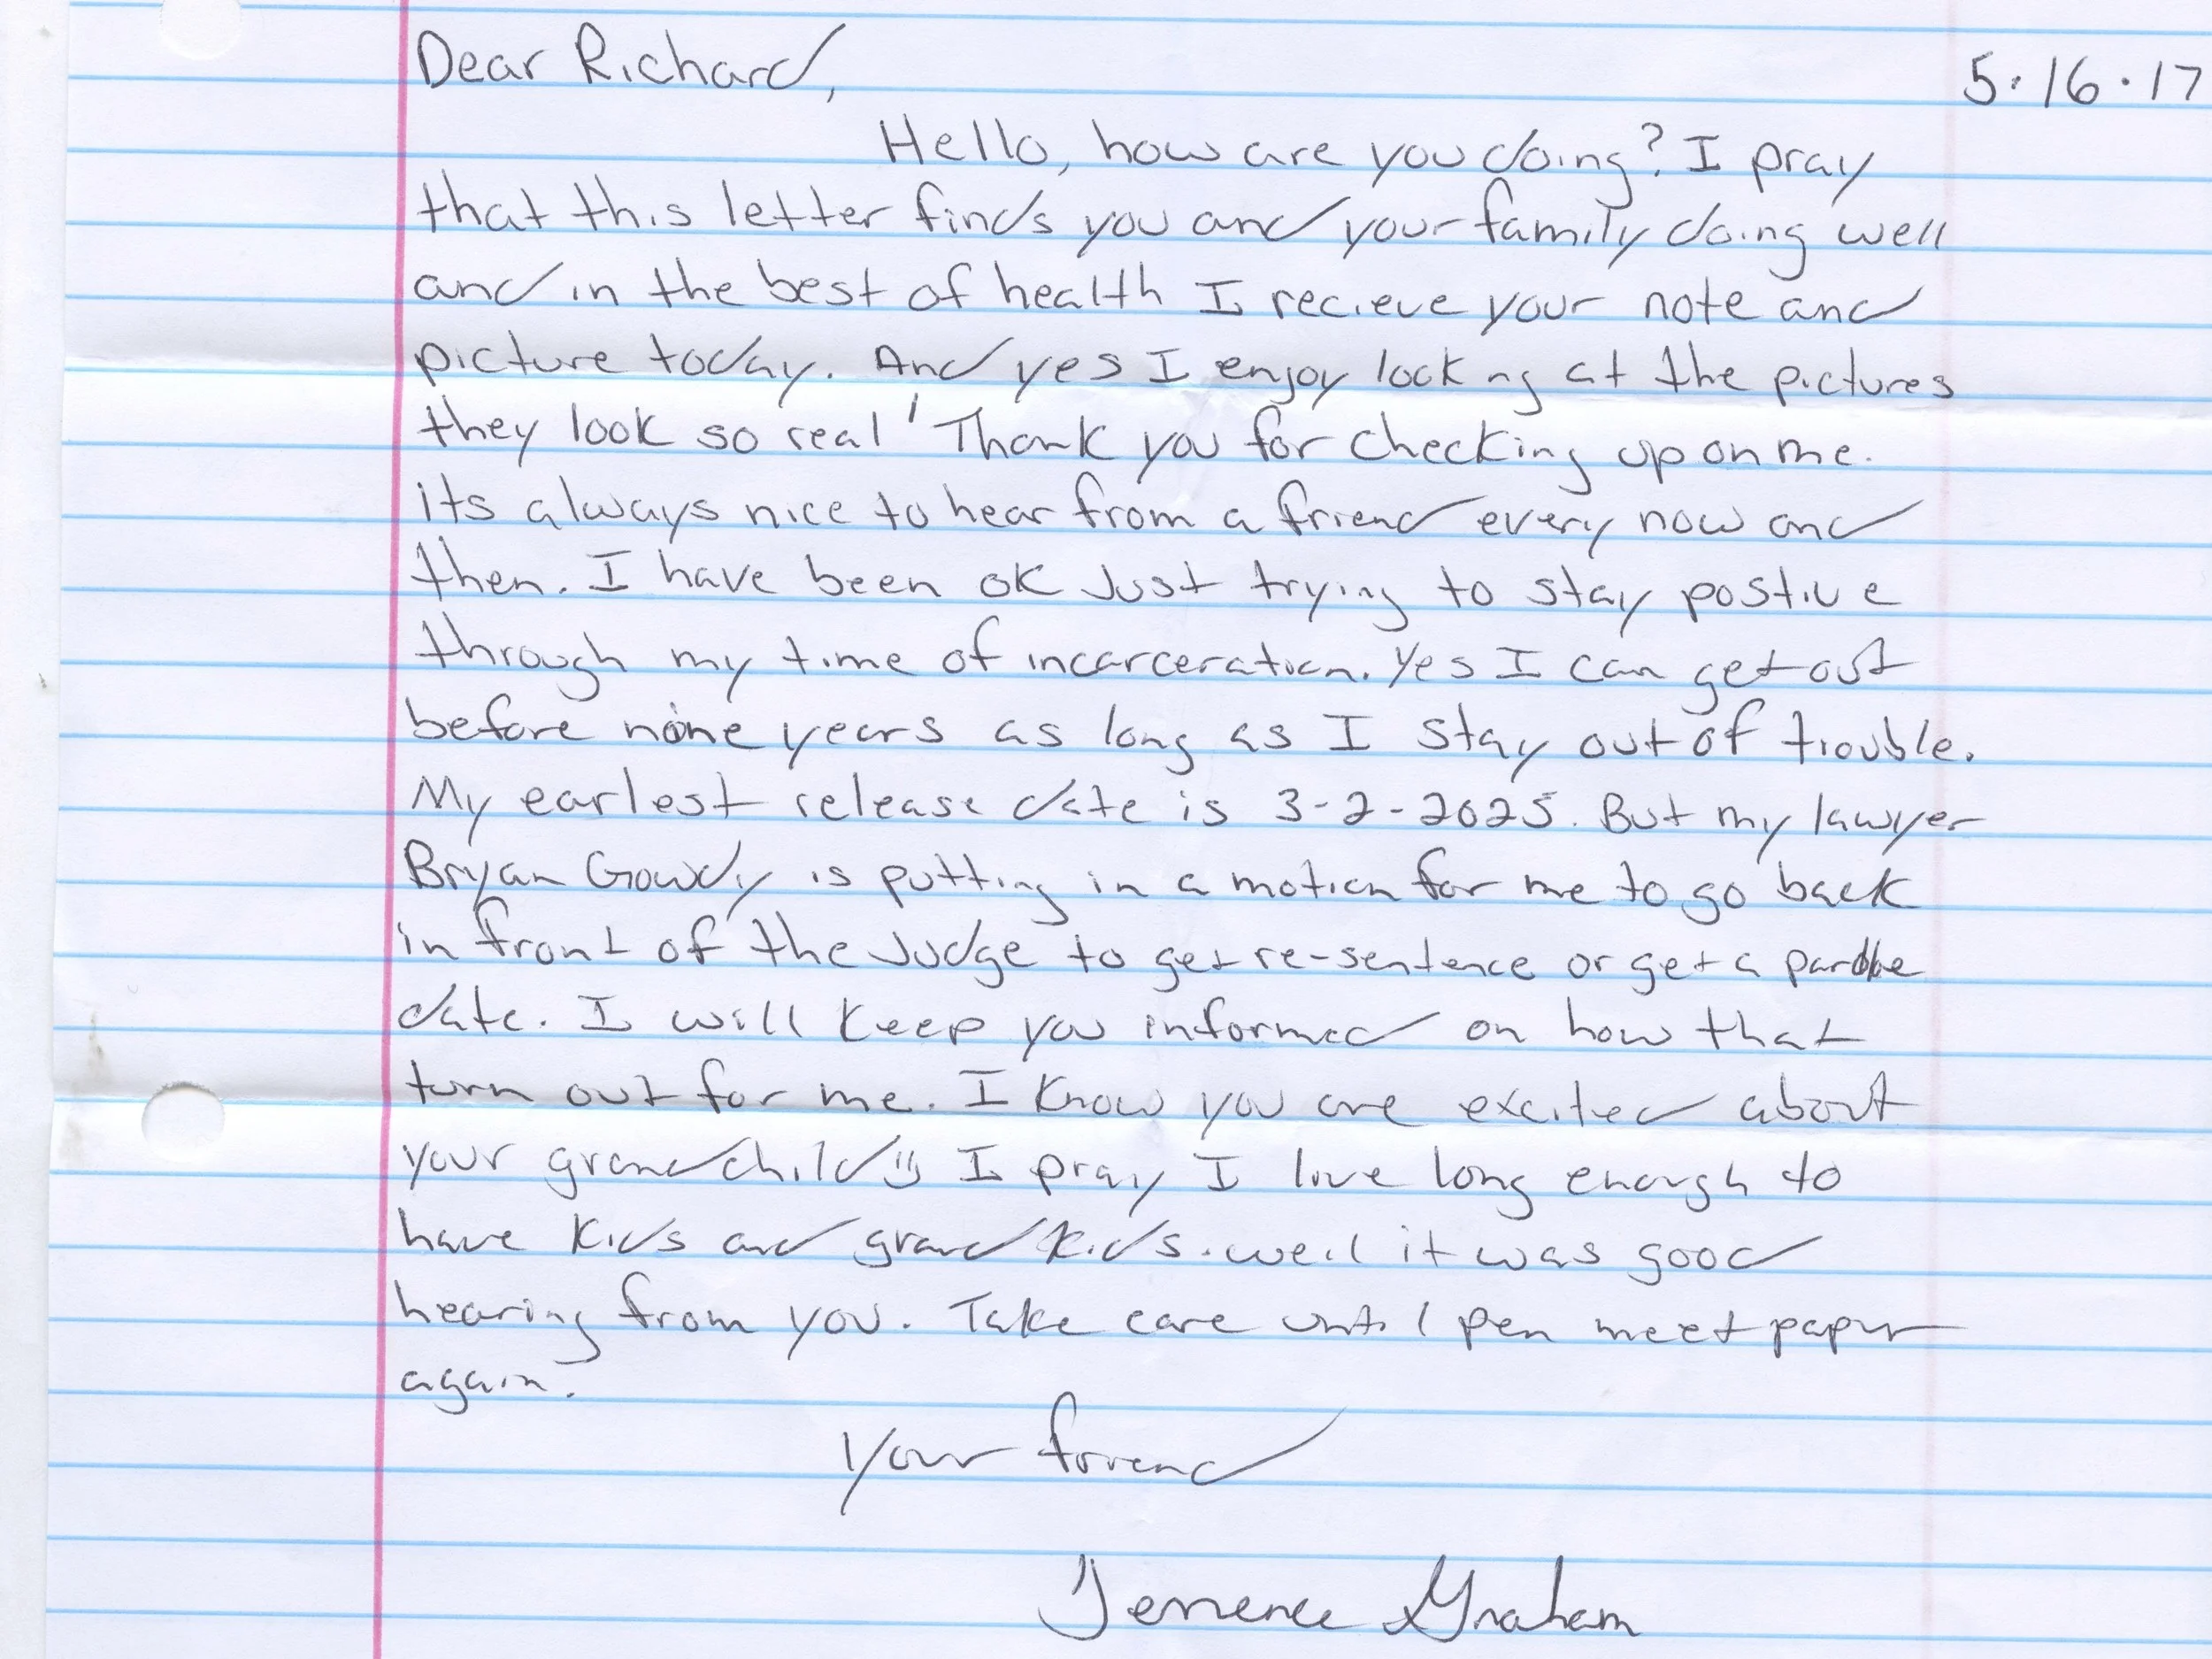 Dear Richard,
5.16.17
Hello, how are you doing? I pray
that this letter finds you and your family doing well
and in the best of health I recieve your note and
picture today. And yes I enjoy looking at the pictures
they look so real! Thank you for checking up on me.
its always nice to hear from a friend every now and
then. I have been ok Just trying to stay postive
through my time of incarceration. Yes I can get out
before nine years as long as I stay out of trouble.
My earlest release date is 3-2-2025. But my lawyer
Bryan Gowdy is putting in a motion for me to go back
in front of the Judge to get re-sentence or get a parole
date. I will keep you informed on how that
turn out for me. I know you are excited about
your grandchild I pray I live long enough to
have kids and grand kids. well it was good
hearing from you. Take care until pen meet paper
again.
Your friend
Terrence Graham